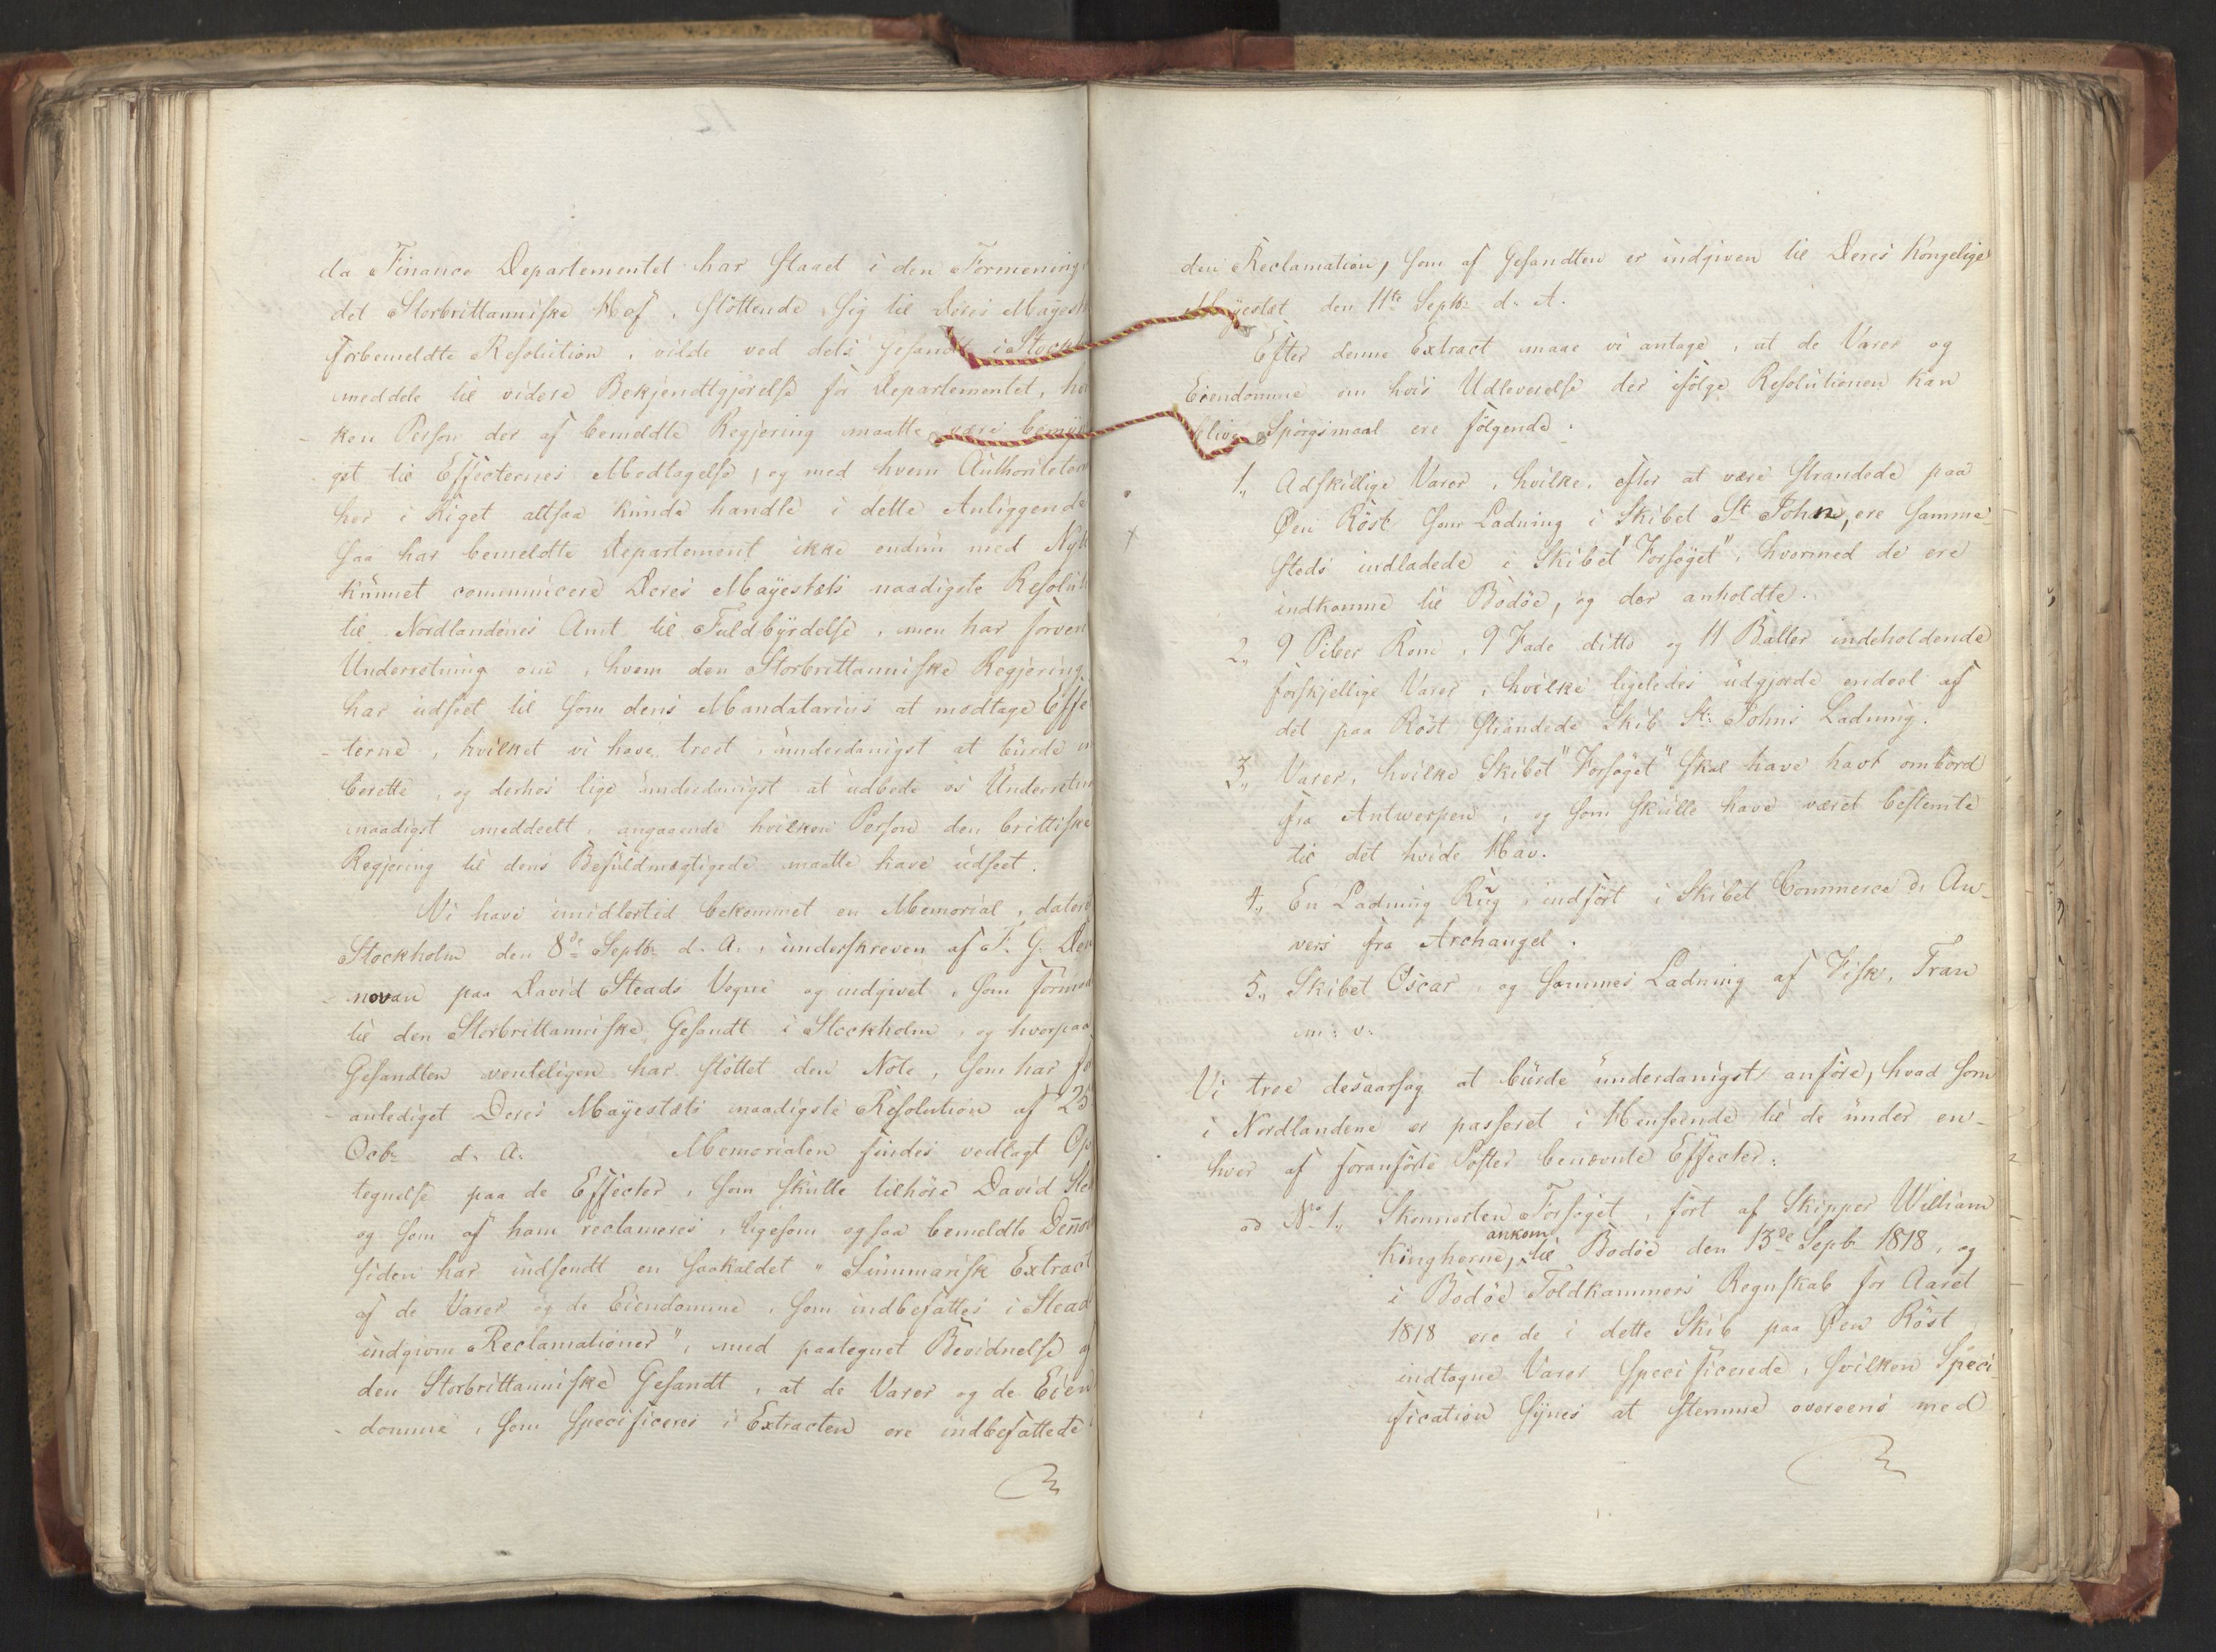 da Finance Departementet har staaet i den Formening
det Storbrittanniske Hof, støttende sig til Deres Mayest
forbemeldte Resolution, vilde ved dets Gesandt i Stockh
meddele til videre Bekjendtgjørelse for Departementet, hvi
ken Person der af bemeldte Regjering maatte være bemyn
get til Effecternes Modtagelse, og med hvem Authoriteter
her i Riget altsaa kunde handle i dette Anliggende
saa har bemeldte Departement ikke endnu med Nytt
kunnet communicere Deres Mayestæts naadigste Resolut
til Nordlandenes Amt til Fuldbyrdelse, men har forven
Underretning om, hvem den Storbrittanniske Regjering
har udseet til som dens Mandatarius at modtage Effe
terne, hvilket vi have troet underdanigst at burde in
berette, og derhos lige underdanigst at udbede os Underretni
naadigst meddeelt, angaaende hvilken Person den brittiske
Regjering til dens Befuldmægtigede maatte have udseet.
Vi have imidlertid bekommet en Memorial, dater
Stockholm den 8de Septbr d. A., underskreven af F. G. Den
novan paa David Steads Vegne og indgivet, som formod
til den Storbrittanniske Gesandt i Stockholm, og hvorpaa
Gesandten venteligen har støttet den Note, som har fo
anlediget Deres Mayestæts naadigste Resolution af 23
Octbr d. A. Memorialen findes vedlagt Op
tegnelse paa de Effecter, som skulle tilhøre David Ste
og som af ham reclameres, ligesom ogsaa bemeldte Denno
siden har indsendt en saakaldet "Summarisk Extract
af de Varer og de Eiendomme, som indbefattes i Stead
indgivne Reclamationer", med paategnet Bevidnelse af
den Storbrittanniske Gesandt, at de Varer og de Eien
domme, som specificeres i Extracten ere indbefattede i
den Reclamation, som af Gesandten er indgiven til Deres Kongelige
Mayestæt den 11te Septbr d. A.
Efter denne Extract maae vi antage, at de Varer og
Eiendomme om hvis Udleverelse der ifølge Resolutionen kan
blive Spørgsmaal ere følgende:
1., Adskillige Varer, hvilke, efter at være strandede paa
Øen Röst som Ladning i Skibet St Johns, ere samme
steds indladede i Skibet "Forsøget", hvormed de ere
indkomne til Bodöe, og der anholdte.
2., 9 Piber Rom, 9 Fade ditto og 11 Baller indeholdende
forskjellige Varer, hvilke ligeledes udgjorde endeel af
det paa Röst strandede Skib St. Johns Ladning.
3., Varer, hvilke Skibet "Forsøget" skal have havt ombord
fra Antwerpen, og som skulle have været bestemte
til det hvide Hav.
4., En Ladning Rug, indført i Skibet Commerce d'An-
vers fra Archangel.
5., Skibet Oscar, og sammes Ladning af Fisk, Tran
m. v.
Vi troe desaarsag at burde underdanigst anføre, hvad som
i Nordlandene er passeret i Henseende til de under en-
hver af foranførte Poster benævnte Effecter:
ad No 1., Skonnerten Forsøget, ført af Skipper William
Kinghorne, ankom til Bodöe den 13de Septbr 1818, og
i Bodöe Toldkammers Regnskab for Aaret
1818 ere de i dette Skib paa Øen Röst
indtagne Varer specificerede, hvilken Speci-
fication synes at stemme overeens med